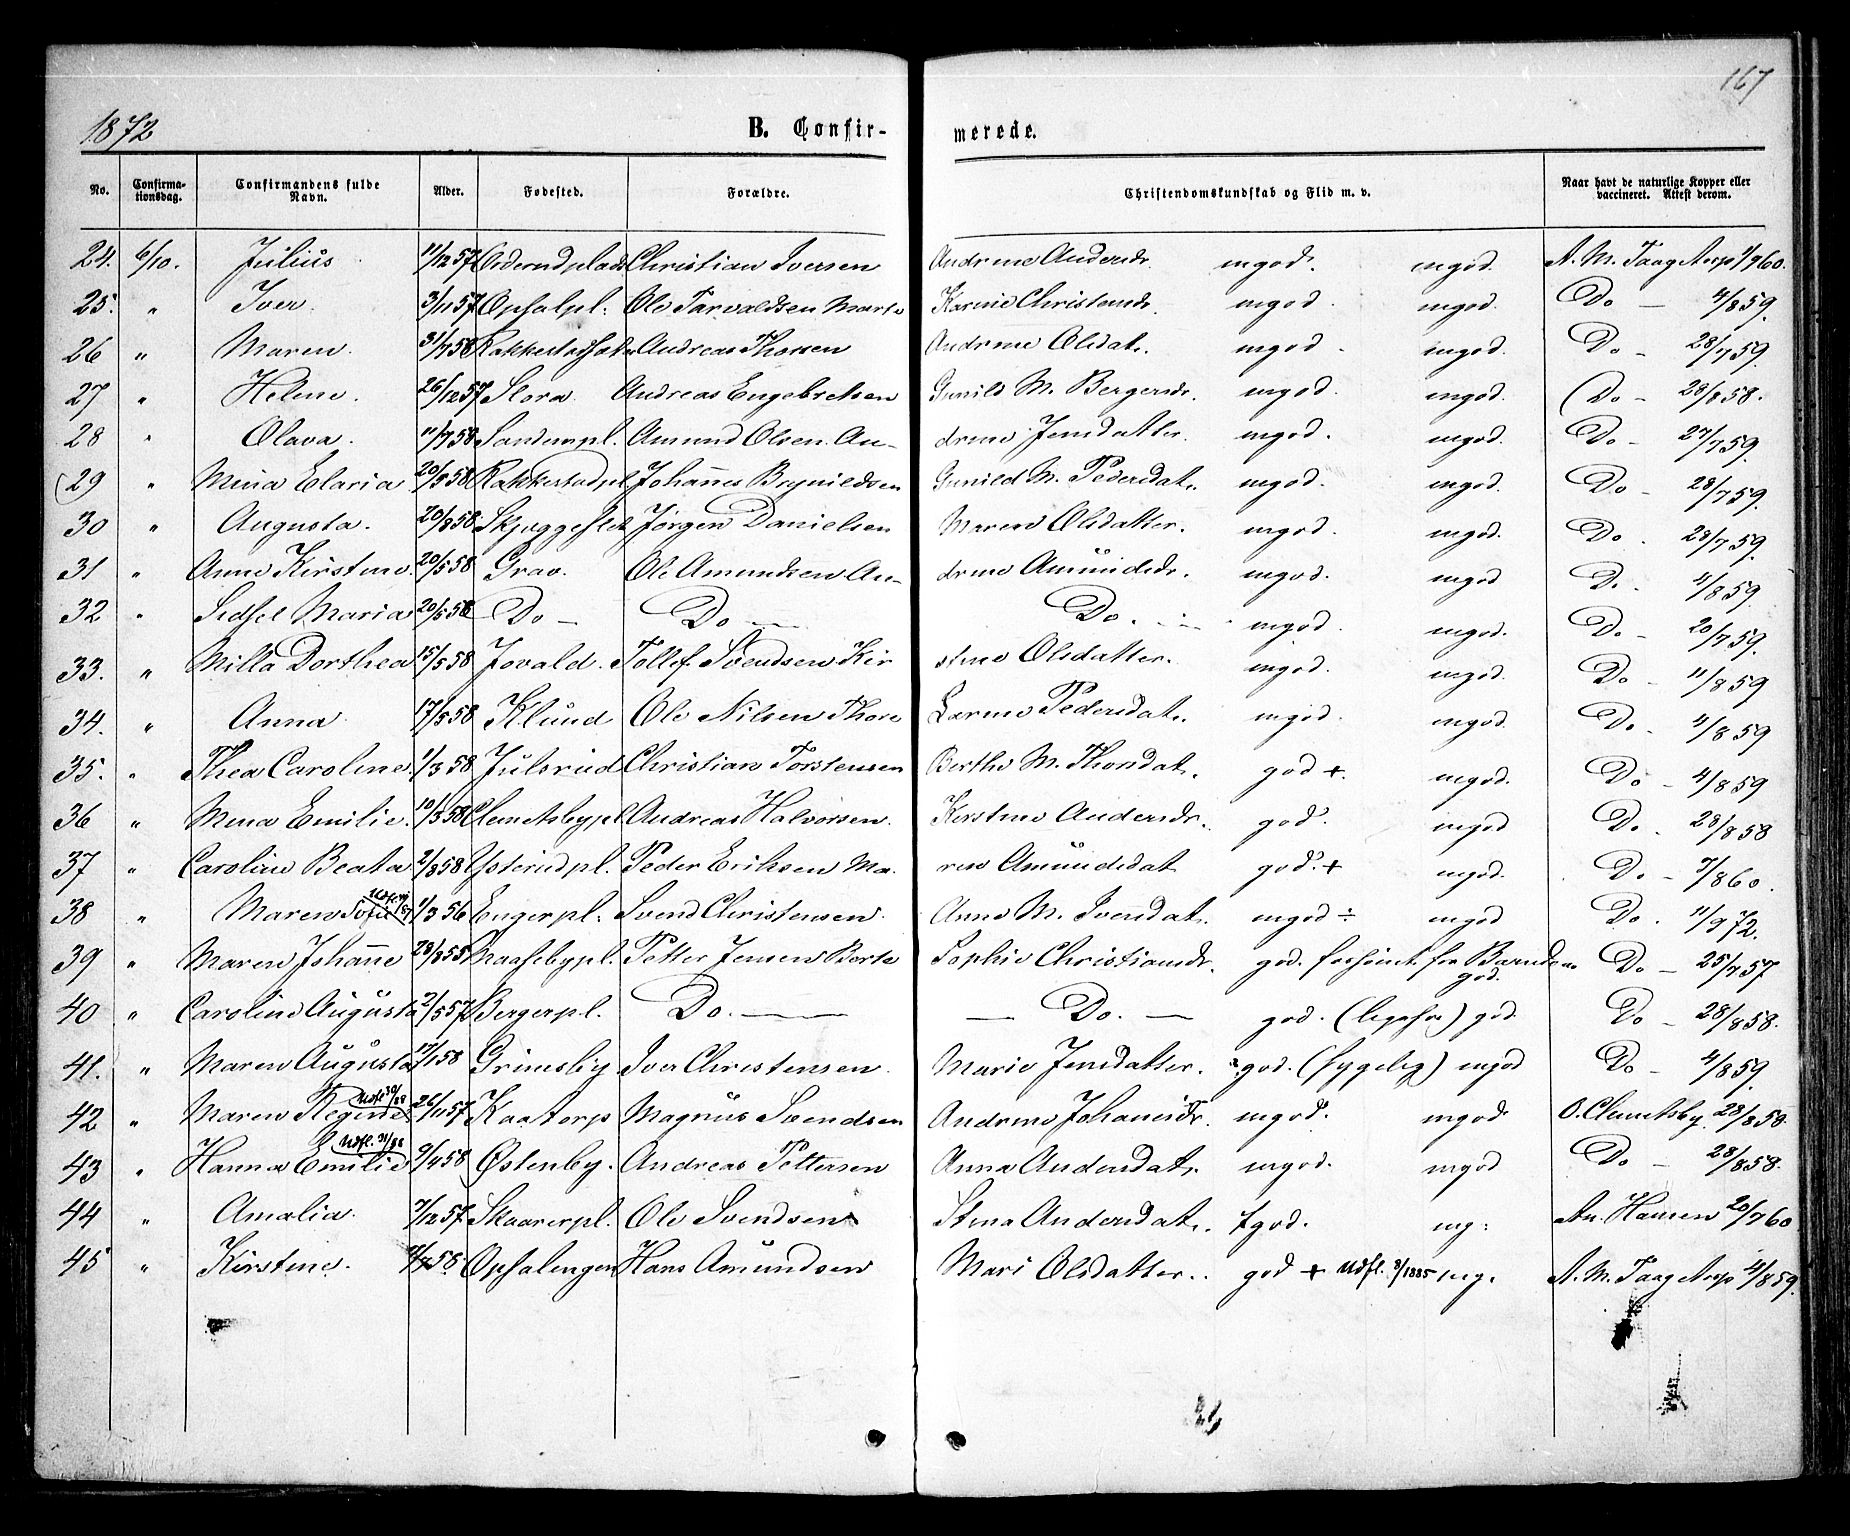 167
1872 B. Confir- merede.
No. Confirma-tionsdag. Confirmandens fulde Navn. Alder. Fødested. Forældre. Christendomskundskab og Flid m. v. Naar havt de naturlige Kopper eller vaccineret. Attest derom.
24. 6/10. Julius 11/12 57 Christian Iversen Andrine Andersdr. mgod. mgod. A. M. Taag Aasp 1/7 60.
25. " Iver. 3/11 57 Opsalpl. Ole Tarvaldsen Marte Karine Christensdr. mgod. mgod. Do — 4/8 59.
26 " Maren. 31/7 58 Andreas Thorsen Andrine Olsdat. mgod. mgod. Do - 28/7 59.
27 " Helene. 26/12 57 Slora. Andreas Engebretsen Gunild M. Bergersdr. mgod. mgod. Do - 28/8 58.
28 " Olava. 11/7 58 Sandempl. Amund Olsen An- drine Jensdatter. mgod. mgod. Do - 27/7 59.
29 " Mina Elaria 20/5 58 Rakkestadpl. Johannes Brynildsen Gunild M. Pedersdat. mgod. mgod. Do - 28/7 59.
30 " Augusta. 20/8 58 Jørgen Danielsen Maren Olsdatter. mgod. mgod. Do . 28/7 59.
31 " Anne Kirstine. 20/5 58 Grav. Ole Amundsen An- drine Amundsdr. mgod. mgod Do . 4/8 59.
32 " Sidsel Maria 20/5 58 Do - Do — Do. — mgod. mgod. Do - 20/7 59.
33. " Milla Dorthea 15/5 58 Jovald. Tollef Svendsen Kir stine Olsdatter. mgod. mgod. Do - 11/8 59
34. " Anna. 17/5 58 Klund Ole Nilsen Thore Larine Pedersdat. mgod. mgod. Do - 4/8 59
35. " Thea Caroline. 1/3 58 Julsrud Christian Torstensen Berthe M. Thorsdat. god +. mgod. Do - 4/8 59
36 " Mina Emilie. 10/3 58 Clemetsbypl Andreas Halvorsen. Kirstine Andersdr. god. mgod Do . 28/8 58
37 " Caroline Beata 2/8 58 Ysterudpl. Peder Eriksen Ma. ren Amundsdat god.+ mgod. Do - 7/8 60.
38 " Maren Sofie 1/3 56 Engerpl. Svend Christensen. Anne M. Iversdat. mgod ÷ mgod Do . 11/9 72.
39 " Maren Johanne 28/8 55 Petter Jensen Berte Sophie Christiansdr. god. god. Do - 25/7 57
40 " Caroline Augusta 2/5 57 Bergerpl. Do. — — Do. — god. god. Do - 28/8 58.
41. " Maren Augusta 17/1 58 Grimsby Iver Christensen. Marie Jensdatter. god. (sygelig) mgod Do - 4/8 59.
42 " Maren Regine 26/11 57 Kaatorp Magnus Svendsen Andrine Johannesdr. mgod. mgod O. Clemetsby 28/8 58.
43 " Hanna Emilie Udfl. 31/88 9/4 58 Østenby. Andreas Pettersen Anna Andersdat. mgod. mgod Do — 28/8 58.
44 " Amalia. 7/12 57 Skaarerpl. Ole Svendsen Stina Andersdat. tgod. mg. An. Hansen 20/7 60
45 " Kirstine. 4/7 58. Opsalengen Hans Amundsen Mari Olsdatter.. god + Udfl. 8/1885 mg. A. M. Taag Aasp 4/8 59.